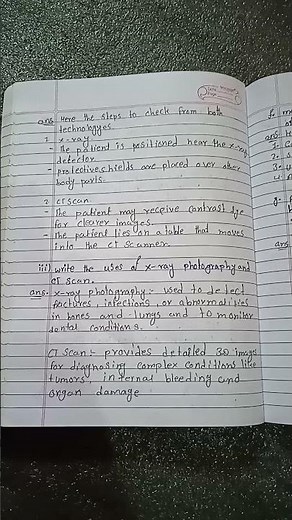 ans. Here the steps to check from both
technologyes.
1. x-ray
- The patient is positioned near the x-ray
detector.
- protective shields are placed over other
body parts.
2. CT scan
- The patient may receive contrast dye
for clearer images.
- The patient lies on a table that moves
into the CT scanner.
iii) write the uses of x-ray photography and
CT scan.
ans. x-ray photography:- used to detect
fractures, infections, or abnormalities
in bones and lungs and to monitor
dental conditions.
CT scan:- provides detailed 3D images
for diagnosing complex conditions like
tumors, internal bleeding and
organ damage
ans